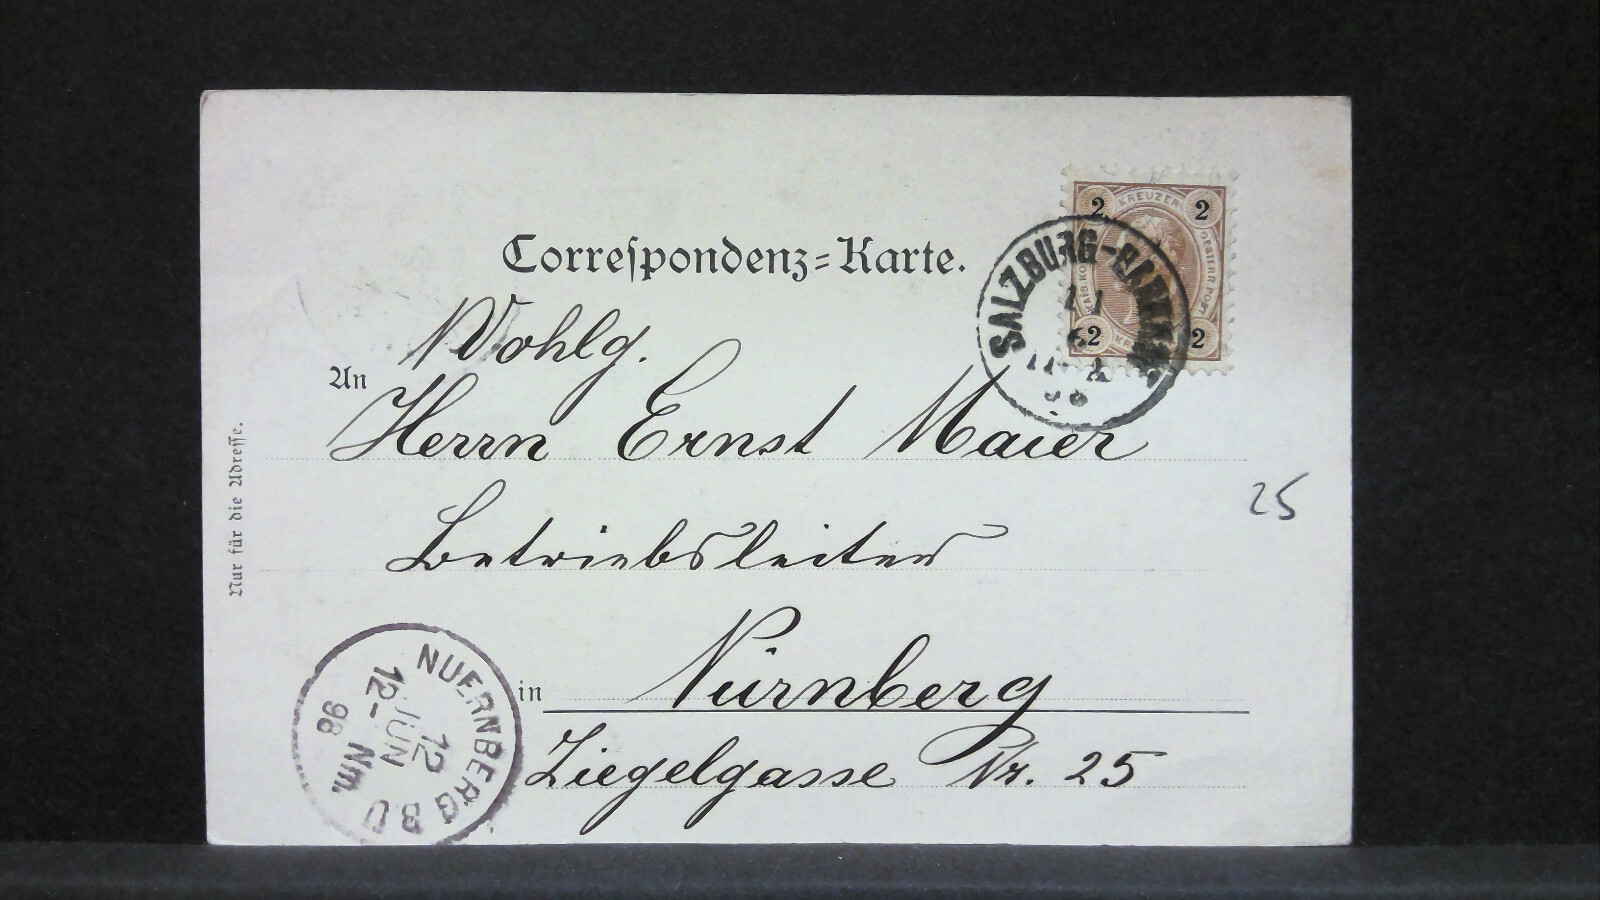 Correspondenz=Karte.
2 KREUZER 2
OESTERR. POST
2 2
SALZBURG-BAHNHOF
Wohlg.
An
Herrn Ernst Maier
25
Betriebsleiter
in Nürnberg
Ziegelgasse Nr. 25
Nur für die Adresse.
NUERNBERG B U
12 JUN 98
12- Nm.